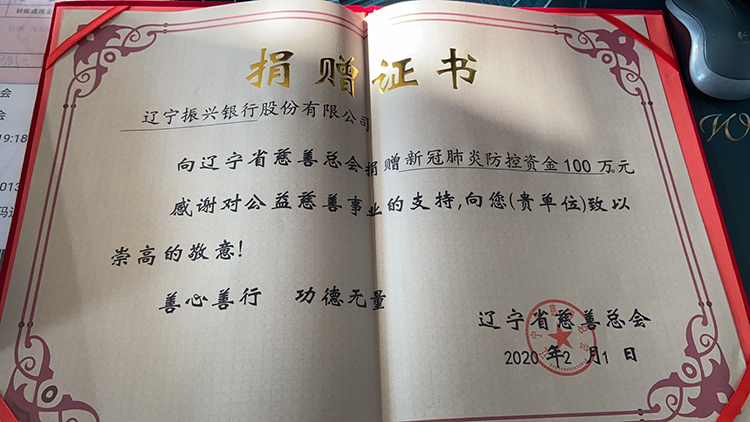 捐赠证书
辽宁振兴银行股份有限公司
向辽宁省慈善总会捐赠新冠肺炎防控资金100万元
感谢对公益慈善事业的支持,向您(贵单位)致以
崇高的敬意!
善心善行 功德无量
辽宁省慈善总会
2020年2月1日
会
19:18
013